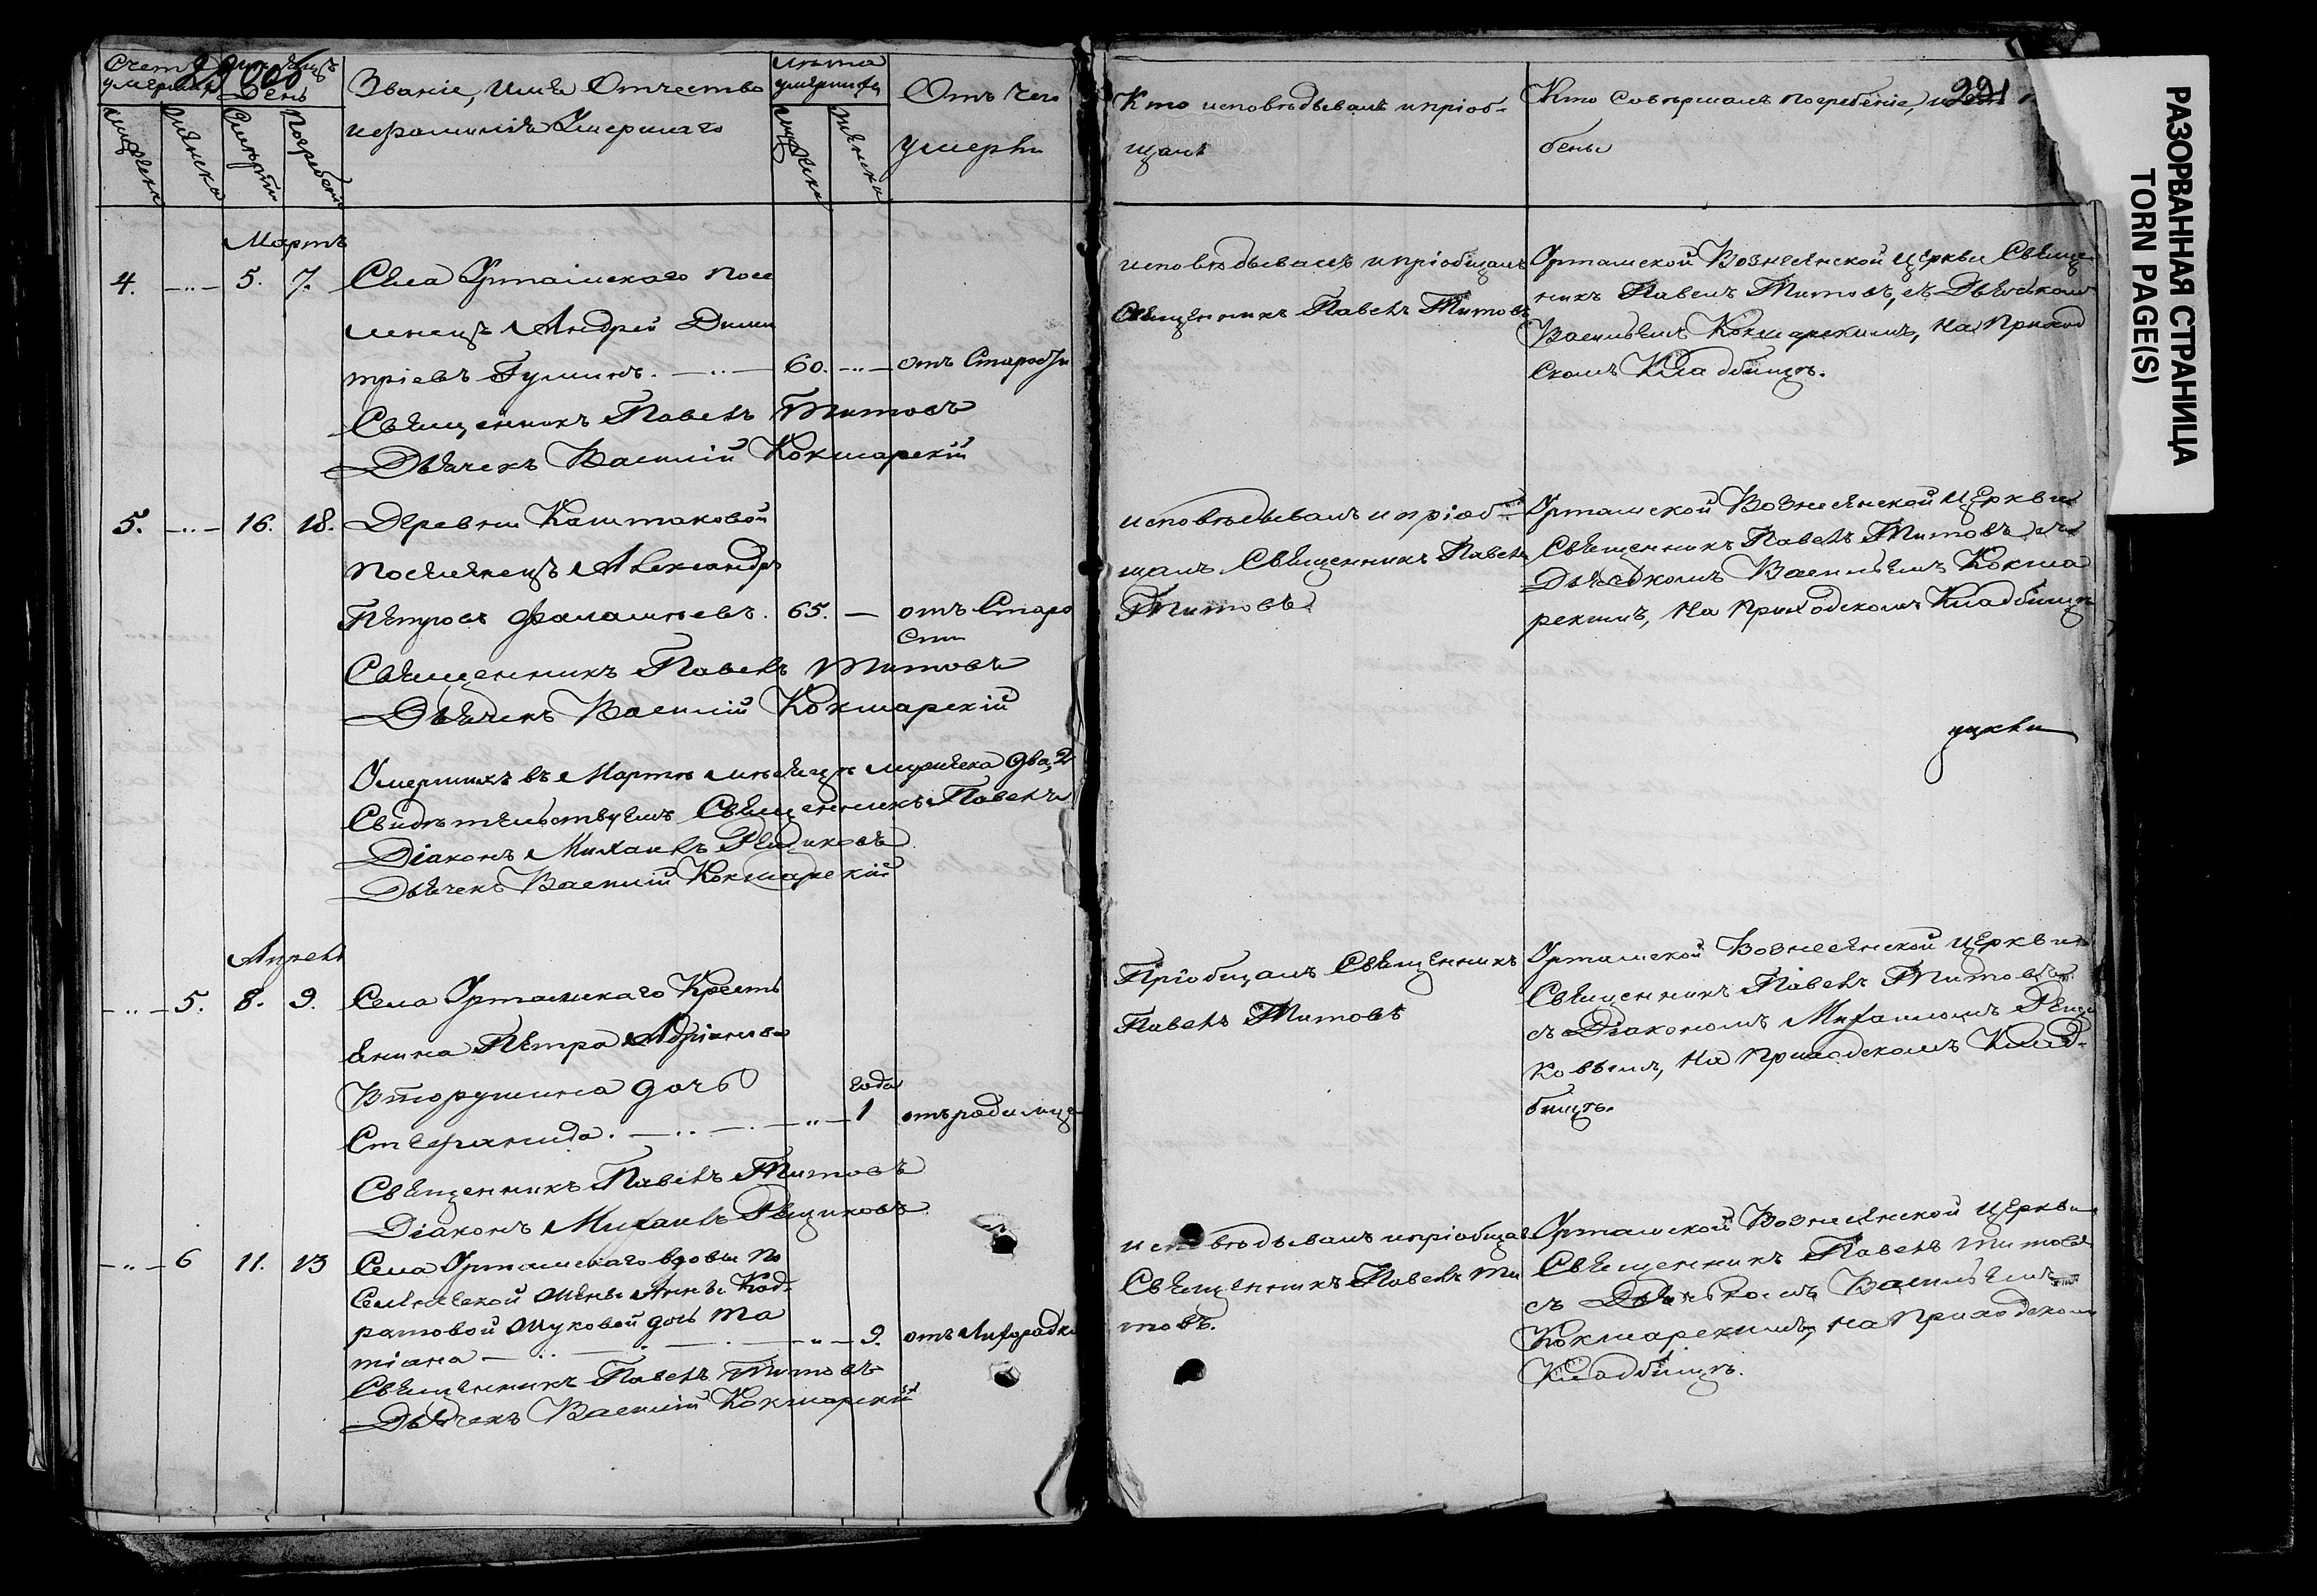 Счетъ умершихъ
Мѣсяцъ День
Званіе, Имя Отчество
Лѣта умершихъ
Отъ чего
Мужска
Женска
Смерти
Погребенія
и фамилія Умершаго
Мужска
Женска
умерли
Мартъ
4. 5. 7. Села Уртамскаго посе
ленецъ Андрей Дими
тріевъ Гуминъ. 60. отъ Старости
Священникъ Павелъ Титовъ
Дьячекъ Василій Кокшарскій
5. 16. 18. Деревни Каштаковой
поселенецъ Александръ
Петровъ Фалалѣевъ. 65. — отъ Старо
сти
Священникъ Павелъ Титовъ
Дьячекъ Василій Кокшарскій
Умершихъ въ Мартѣ мѣсяцѣ мужеска два, 2
Свидѣтельствуемъ Священникъ Павелъ
Діаконъ Михаилъ Рещиковъ
Дьячекъ Василій Кокшарскій
Апрель
5. 8. 9. Села Уртамскаго Кресть
янина Петра Адріанова
Вторушина дочь года
Стефанида. 1 отъ родимца
Священникъ Павелъ Титовъ
Діаконъ Михаилъ Рещиковъ
6 11. 13 Села Уртамскаго вдовы по
селенческой жены Анны Код-
ратовой Жуковой дочь Та
тіана 9. отъ лихорадки
Священникъ Павелъ Титовъ
Дьячекъ Василій Кокшарскій
221
Кто исповѣдывалъ и пріоб-
щалъ
Кто совершалъ погребеніе,
бены
исповѣдывалъ и пріобщалъ
Священникъ Павелъ Титовъ
Уртамской Вознесенской церкви Священ
никъ Павелъ Титовъ, съ Дьячкомъ
Васильемъ Кокшарскимъ, на Приход
скомъ Кладбищѣ.
исповѣдывалъ и пріоб-
щалъ Священникъ Павелъ
Титовъ
Уртамской Вознесенской церкви
Священникъ Павелъ Титовъ съ
Дьячкомъ Васильемъ Кокша
рскимъ, на Приходскомъ Кладбищѣ
Пріобщалъ Священникъ
Павелъ Титовъ
Уртамской Вознесенской церкви
Священникъ Павелъ Титовъ
съ Діакономъ Михаиломъ Рещи
ковымъ, на Приходскомъ Клад-
бищѣ.
исповѣдывалъ и пріобщалъ
Священникъ Павелъ Ти
товъ.
Уртамской Вознесенской церкви
Священникъ Павелъ Титовъ
съ Дьячкомъ Васильемъ
Кокшарскимъ, на Приходскомъ
Кладбищѣ.
РАЗОРВАННАЯ СТРАНИЦА
TORN PAGE(S)